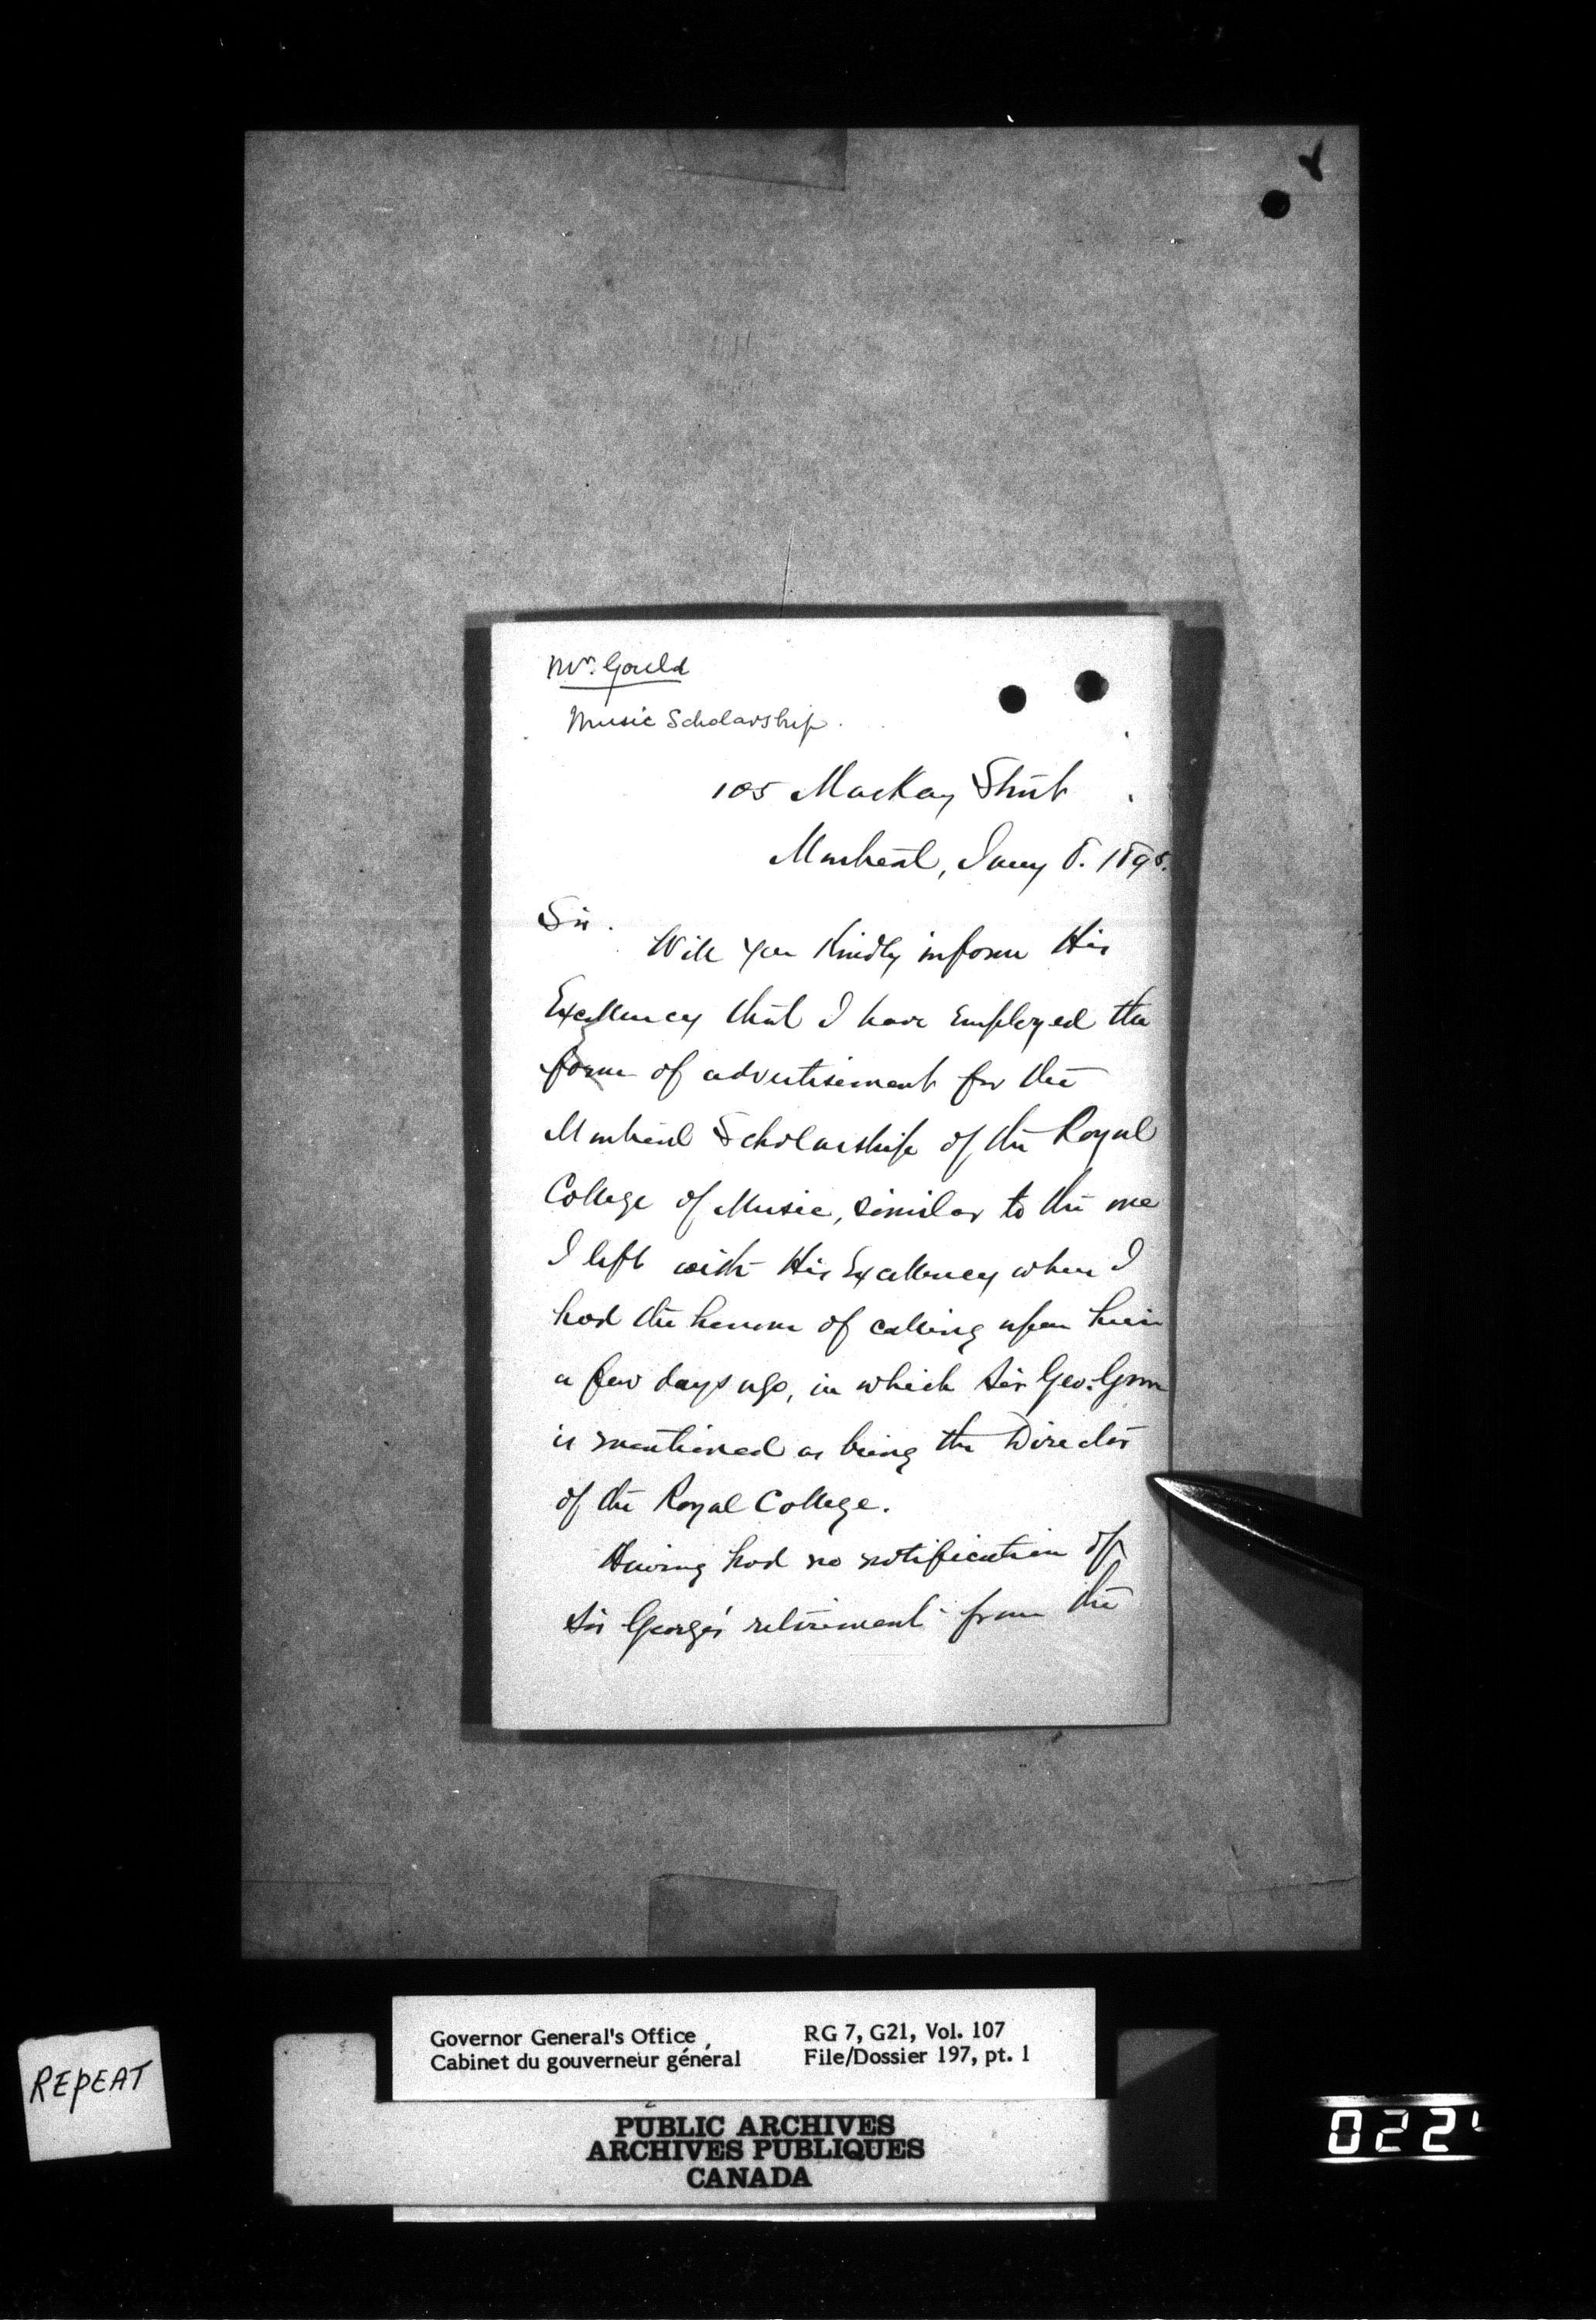 Mr. Gould
Music Scholarship.
105 MacKay Street
Montreal, Jany 8. 1895.
Sir.
Will you kindly inform His
Excellency that I have employed the
form of advertisement for the
Montreal Scholarship of the Royal
College of Music, similar to the one
I left with His Excellency when I
had the honour of calling upon him
a few days ago, in which Sir Geo: Grove
is mentioned as being the Director
of the Royal College.
Having had no notification of
Sir George's retirement from the
Governor General's Office
Cabinet du gouverneur général
RG 7, G21, Vol. 107
File/Dossier 197, pt. 1
REPEAT
PUBLIC ARCHIVES
ARCHIVES PUBLIQUES
CANADA
022